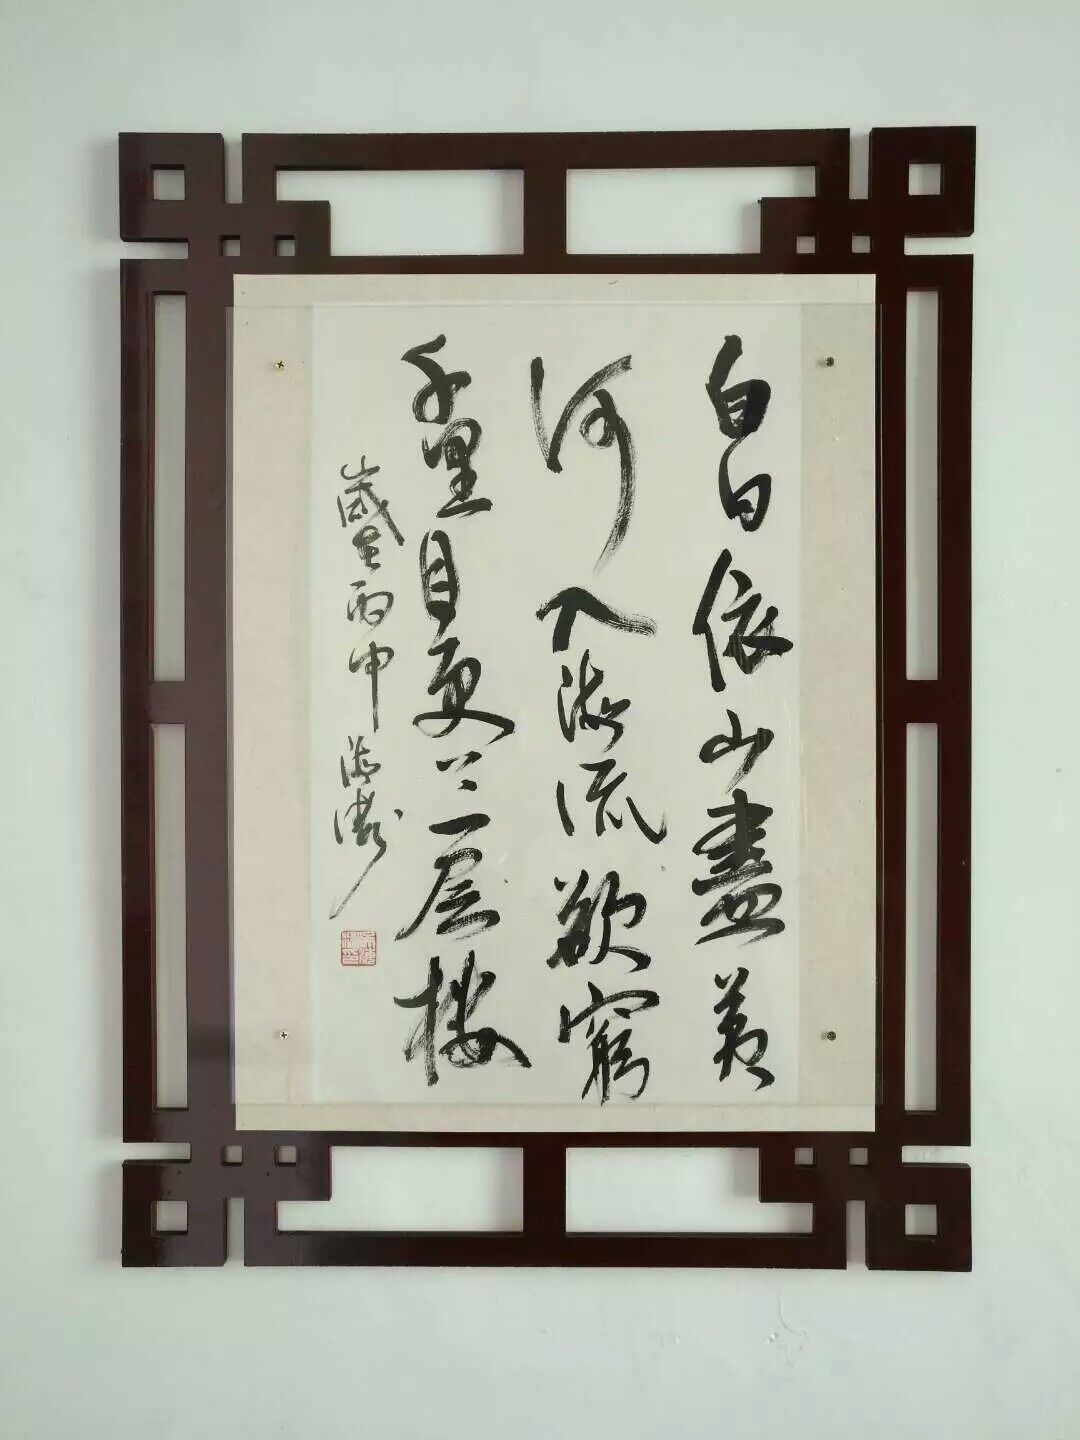 白日依山盡黃
河入海流欲窮
千里目更上一层樓
歲在丙申